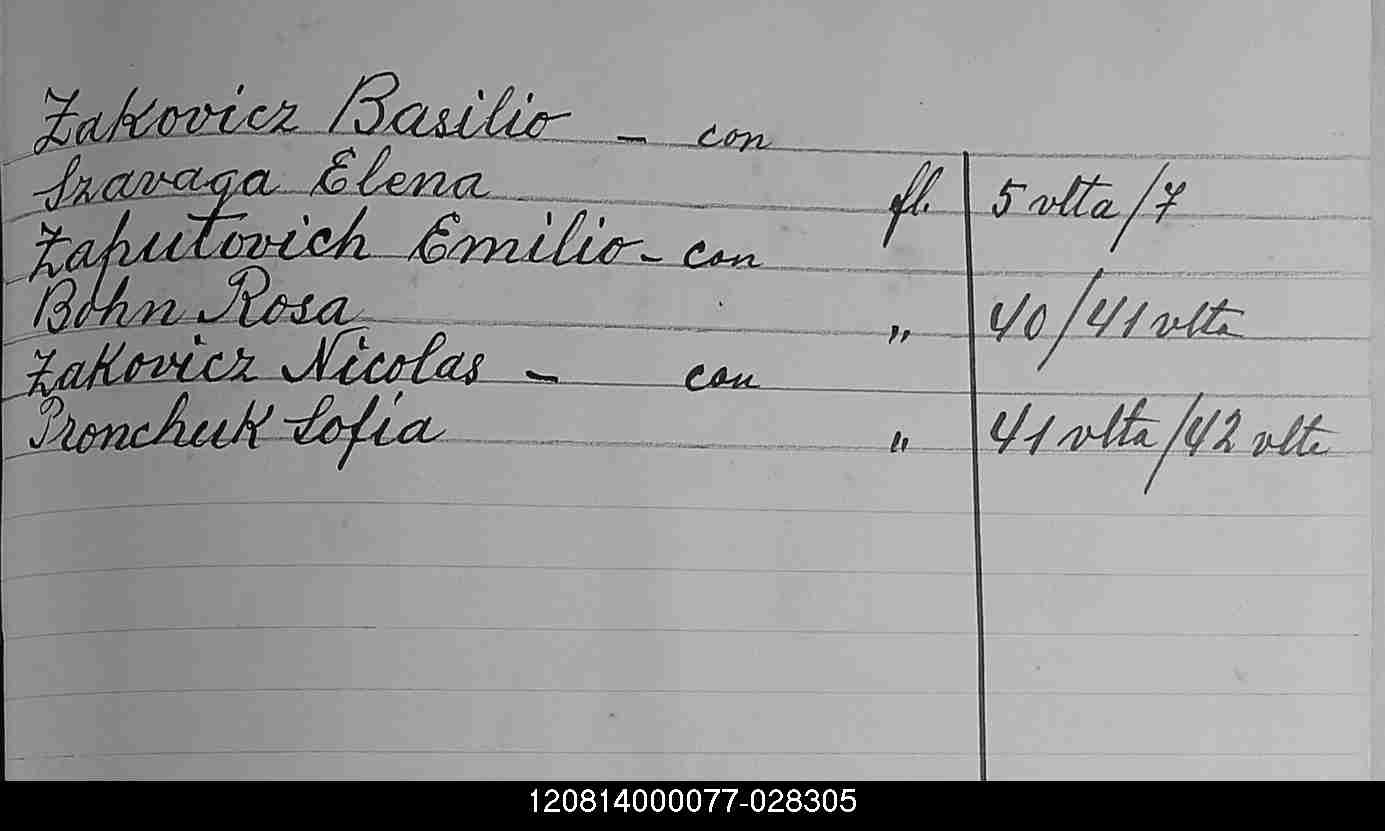 Zakovicz Basilio - con
Szavaga Elena fl. 5 vlta/7
Zaputovich Emilio - con
Bohn Rosa " 40/41 vlta
Zakovicz Nicolas - con
Pronchuk Sofia " 41 vlta/42 vlta
120814000077-028305